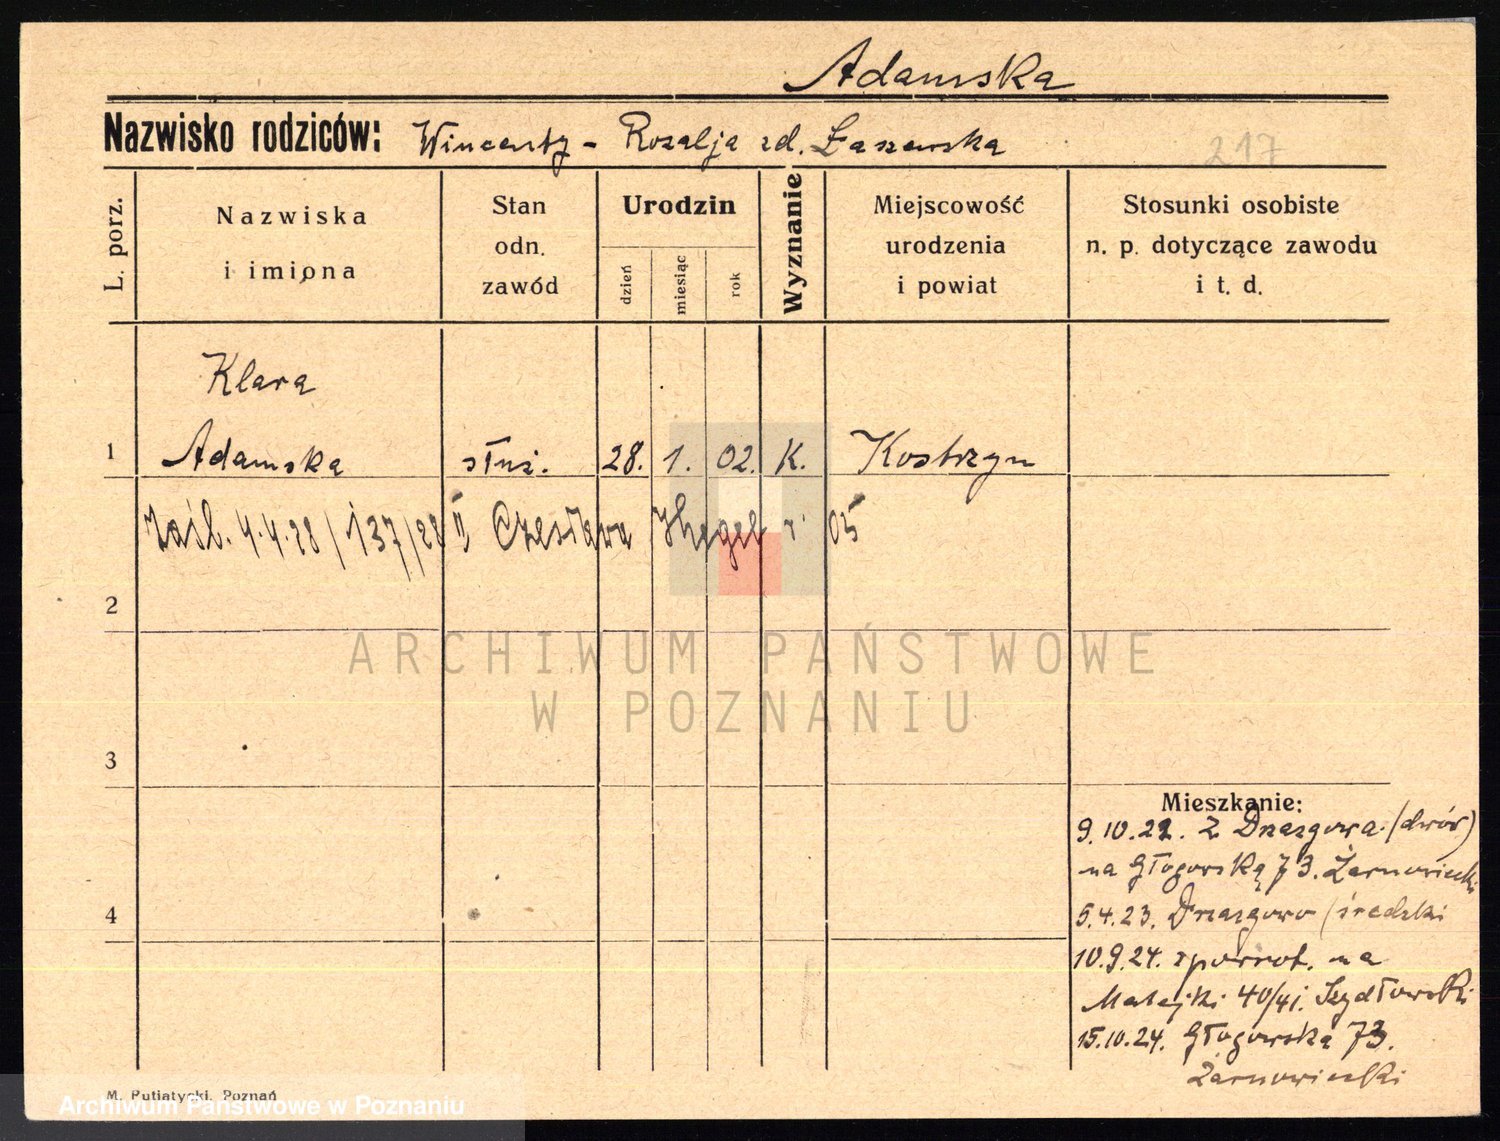 Adamska
Nazwisko rodziców: Wincenty - Rozalja zd. Łaszewska
217
L. porz.
Nazwiska
i imiona
Stan
odn.
zawód
Urodzin
dzień
miesiąc
rok
Wyznanie
Miejscowość
urodzenia
i powiat
Stosunki osobiste
n. p. dotyczące zawodu
i t. d.
Klara
1 Adamska służ. 28. 1. 02. K. Kostrzyn
zaśl. 4.4.28/137/28 II Czesława r. 05
2
ARCHIWUM PAŃSTWOWE
W POZNANIU
3
Mieszkanie:
9.10.22. z Drzązgowa (dwór)
na Głogowską 73. Żarnowiecki
4
5.4.23. Drzązgowo (średzki
10.9.24. zpowrot. na
Matejki 40/41. Szydłowski
15.10.24. Głogowska 73.
Żarnowiecki
M. Putiatycki, Poznań
Archiwum Państwowe w Poznaniu